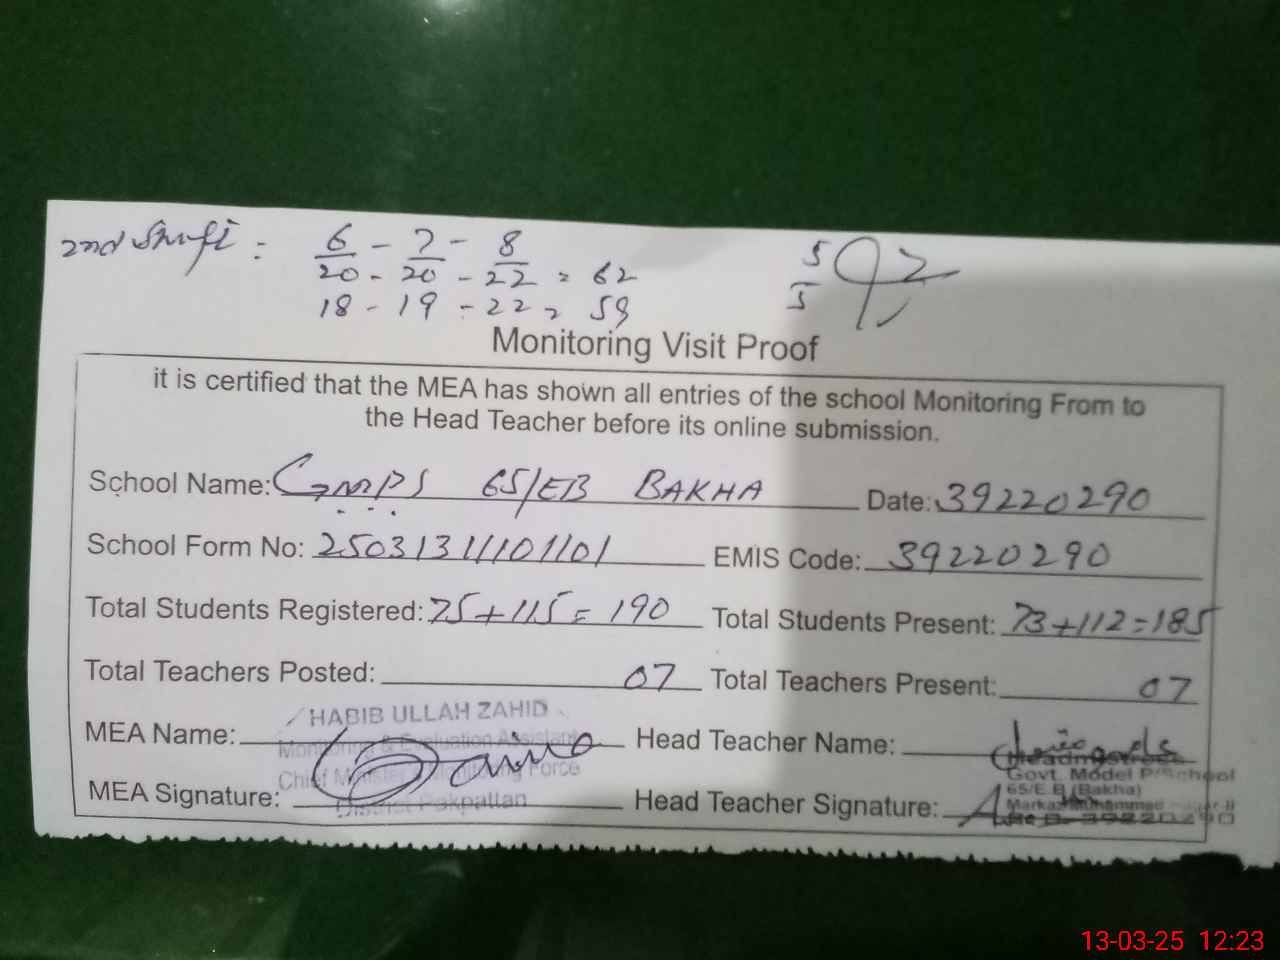 2nd Shift: 6 - 7 - 8
20 - 20 - 22 = 62
18 - 19 - 22 = 59
5
5
Monitoring Visit Proof
it is certified that the MEA has shown all entries of the school Monitoring From to
the Head Teacher before its online submission.
School Name: GMPS 65/EB BAKHA Date: 39220290
School Form No: 25031311101101 EMIS Code: 39220290
Total Students Registered: 75+115= 190 Total Students Present: 73+112=185
Total Teachers Posted: 07 Total Teachers Present: 07
HABIB ULLAH ZAHID
MEA Name: Head Teacher Name:
Monitoring & Evaluation Assistant
Headmistress
Chief Minister Monitoring Force
Govt. Model P/School
65/E.B (Bakha)
MEA Signature: Head Teacher Signature:
District Pakpattan
Markaz Muhammad
39220290
13-03-25 12:23